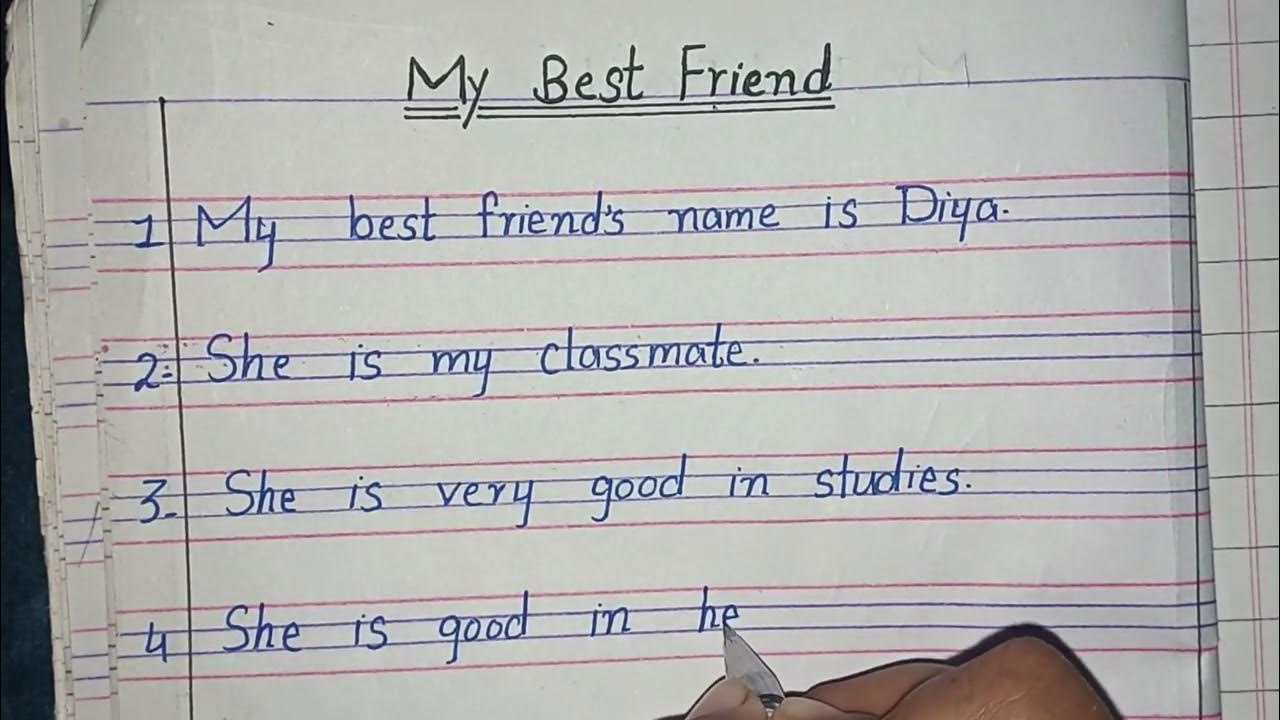 My Best Friend
1 My best friend's name is Diya.
2- She is my classmate.
3- She is very good in studies.
4 She is good in he